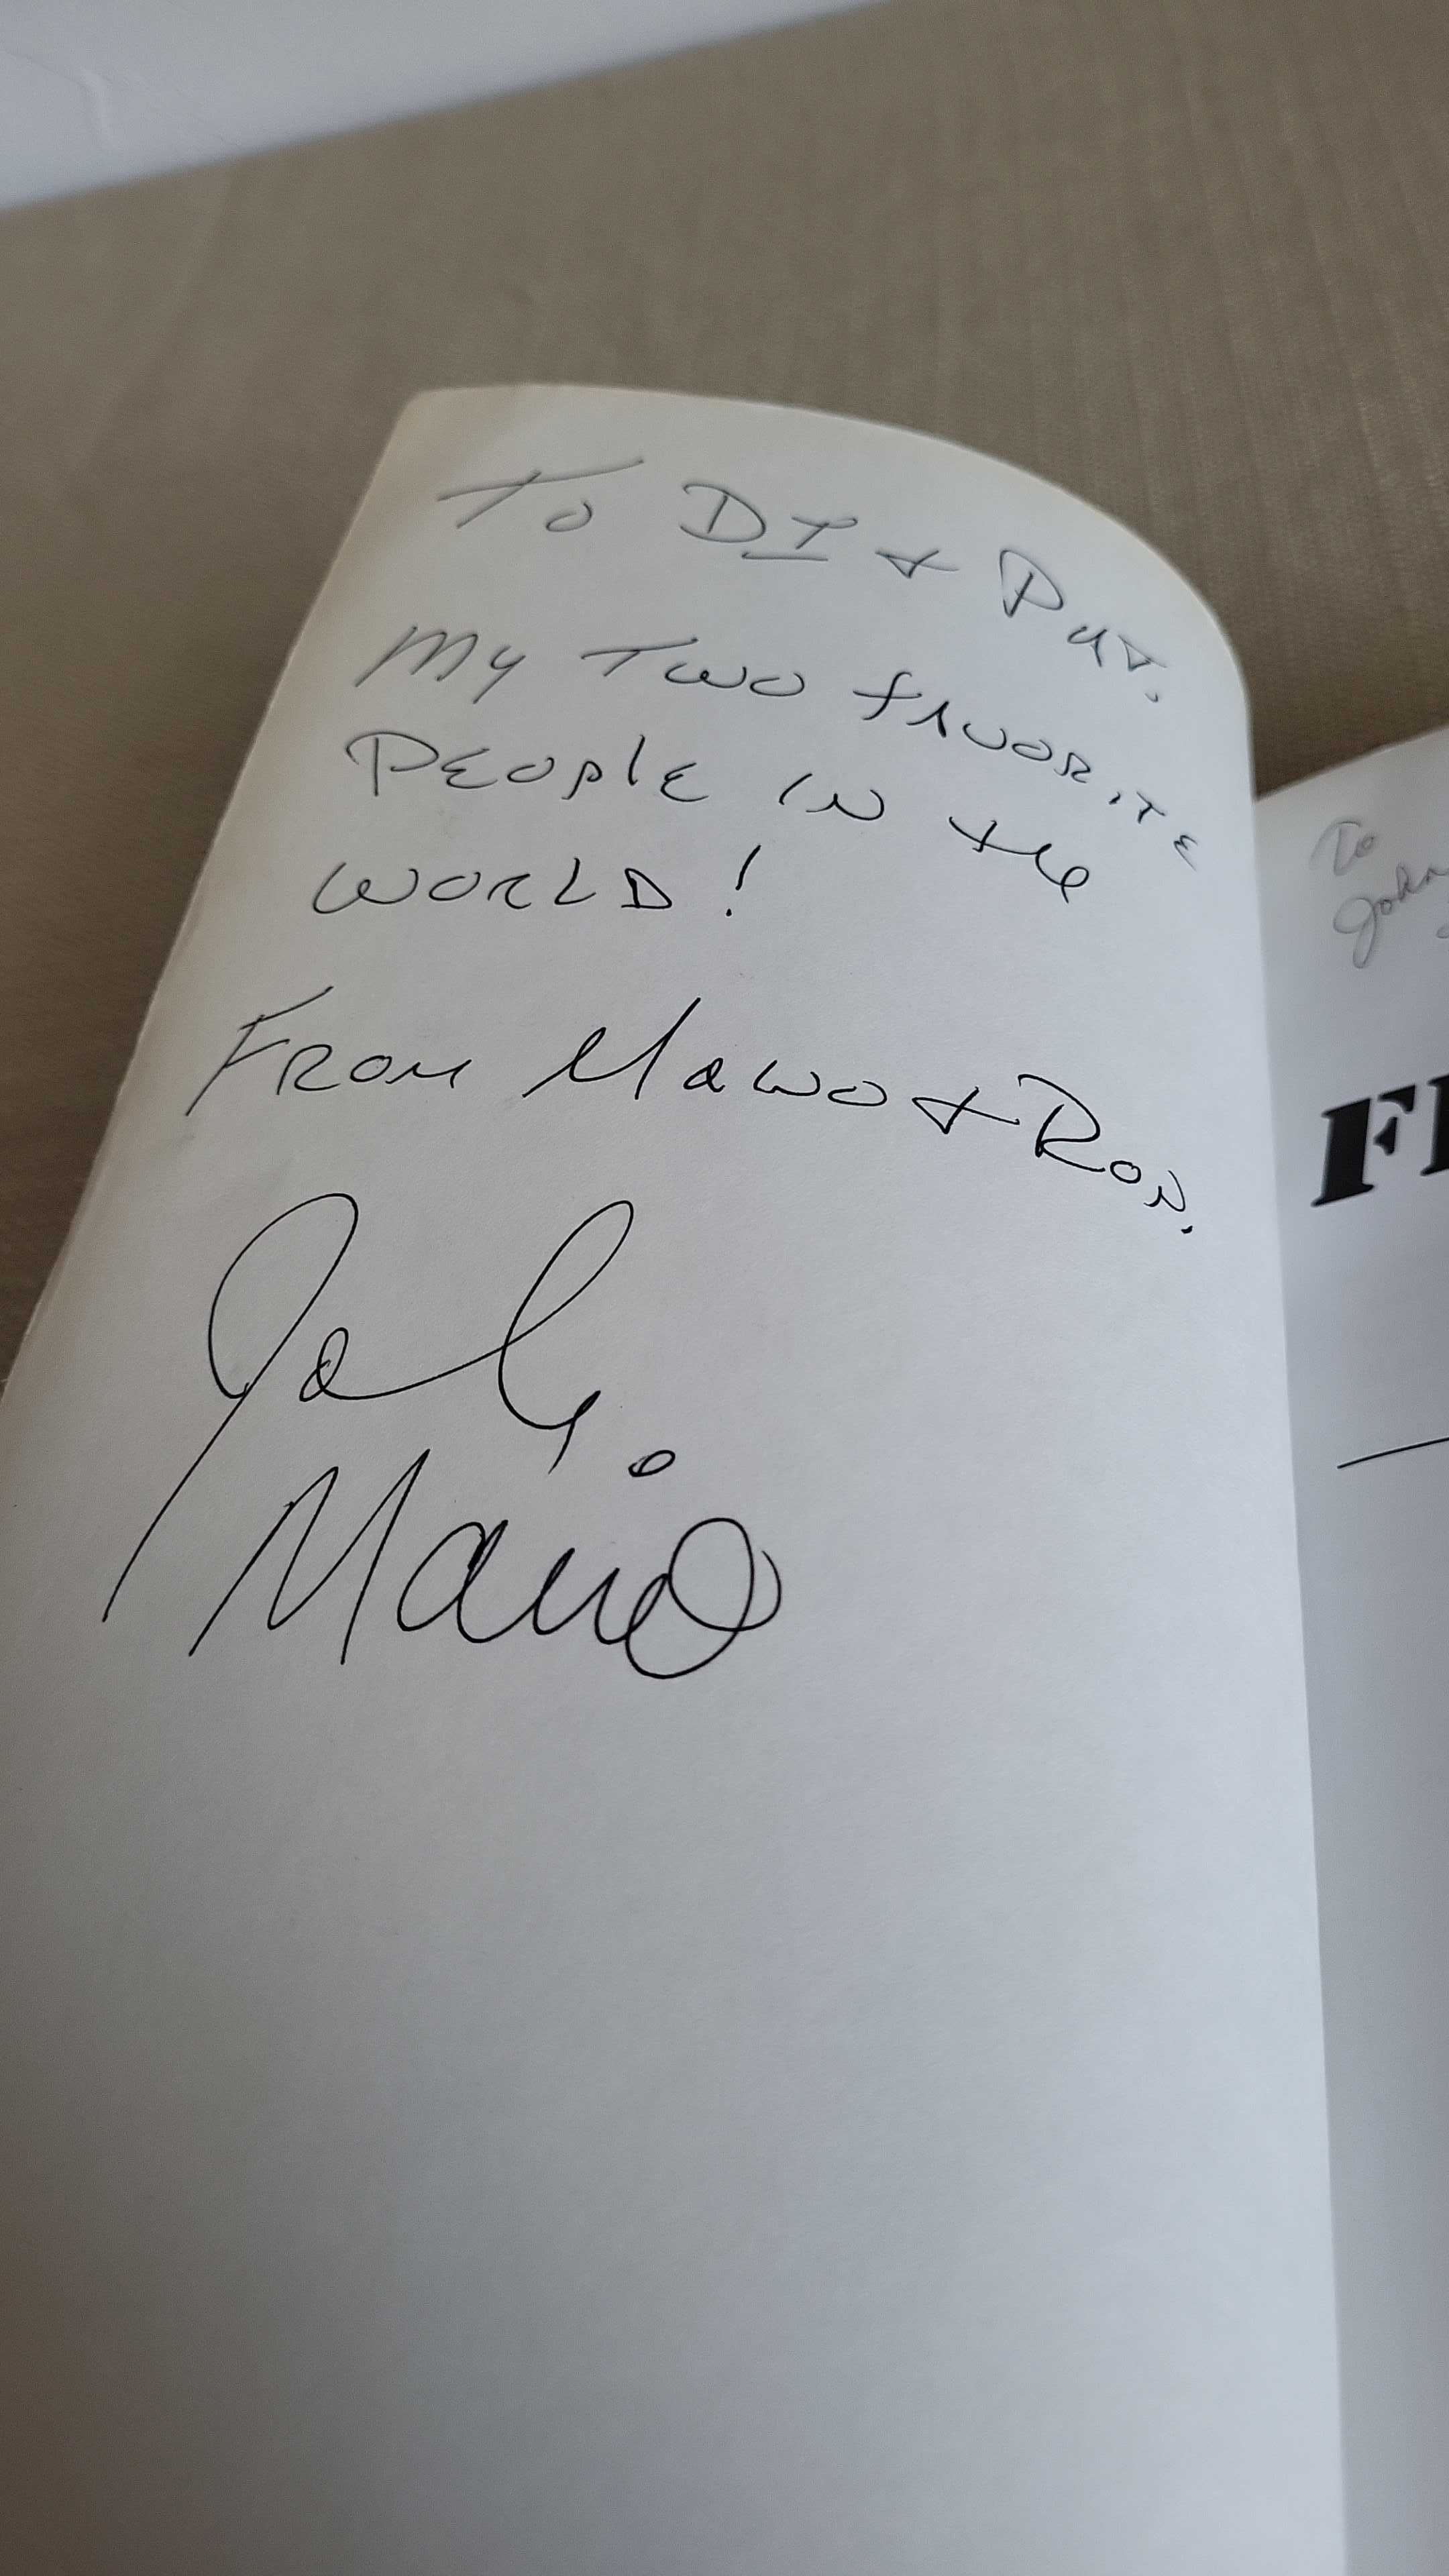 To DI & PAT.
My Two favorite
PEOPlE IN the
WORLD!
FROM Mawo & Rod.
Mario
To
John
F